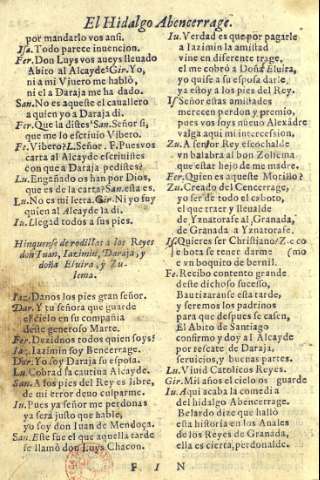 El Hidalgo Abencerrage.
por mandarlo vos ansi.
Isa. Todo parece inuencion.
Fer. Don Luys vos aueys lleuado
Abito al Alcayde? Gir. Yo,
ni a mi Viuero me hablò,
ni el a Daraja me ha dado.
San. No es aqueste el cauallero
a quien yo a Daraja di.
Fer. Que la distes? San. Señor si,
que me lo escriuio Vibero.
Fe. Vibero? L. Señor. F. Pues vos
carta al Alcayde escriuistes
con que a Daraja pedistes?
Lu. Engañado os han por Dios,
que es de la carta? San. esta es.
Lu. No es mi letra. Gir. Ni yo fuy
quien al Alcayde la di.
Iu. Llegad todos a sus pies.
Hinquense de rodillas a los Reyes
don Iuan, Iazimin, Daraja, y
doña Eluira, y Zu-
lema.
Iaz. Danos los pies gran señor.
Dar. Y tu señora que guarde
el cielo en su compañia
deste generoso Marte.
Fer. Dezidnos todos quien soys?
Ia. Iazimin soy Bencerrage.
Dar. Yo soy Daraja su esposa.
Lu. Cobrad la cautiua Alcayde.
San. A los pies del Rey es libre,
de mi error deuo culparme.
Iu. Pues ya señor me perdonas
ya serà justo que hable,
yo soy don Iuan de Mendoça.
San. Este fue el que aquella tarde
se llamò don Luys Chacon.
Iu. Verdad es que por pagarle
a Iazimin la amistad
vine en diferente trage,
el me cobrò a Doña Eluira,
yo quise a su esposa darle,
ya estoy a los pies del Rey.
Is. Señor estas amistades
merecen perdon y premio,
pues vos soys nueuo Alexãdre
valga aqui mi intercession.
Zu. A señor Rey esconchalde
vn balabra al bon Zolicma
que estar hejo de me madre.
Fer. Quien es aqueste Morillo?
Zu. Creado del Cencerrage,
yo ser de todo el coboto,
el que traer y lleualde
de Yznatorafe al Granada,
de Granada a Yznatorafe.
Is. Quieres ser Christiano? Z. c co
e bota se tener darme (mo
e vn boquito de bernil.
Fe. Recibo contento grande
deste dichoso sucesso,
Bautizaranse esta tarde,
y seremos los padrinos
para que despues se casen,
El Abito de Santiago
confirmo y doy al Alcayde
por el rescate de Daraja,
seruicios, y buenas partes.
Lu. Viuid Catolicos Reyes.
Gir. Mil años el cielo os guarde
Iu. Aqui acaba la comedia
del hidalgo Abencerrage.
Belardo dize que hallò
esta historia en los Anales
de los Reyes de Granada,
ella es cierta, perdonalde.
F I N